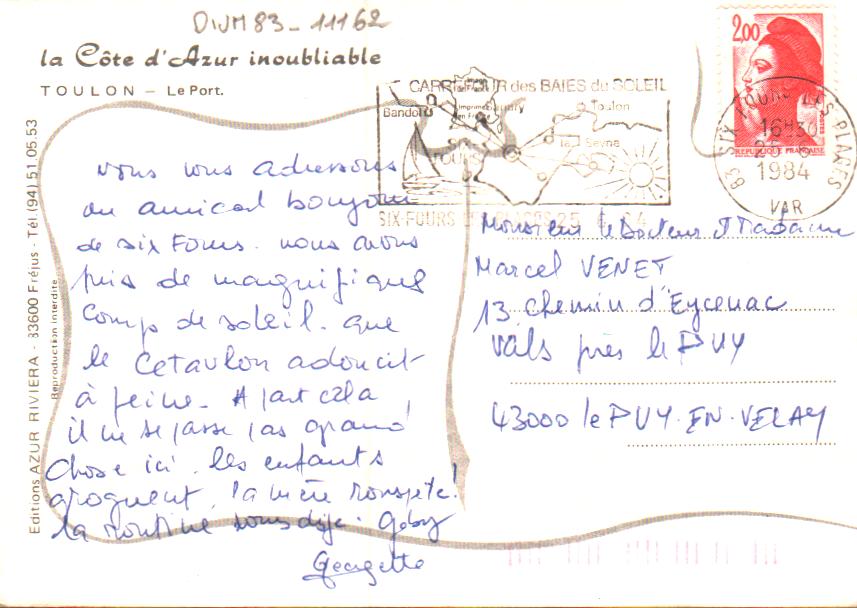 DIVM83-11162
la Côte d'Azur inoubliable
TOULON – Le Port.
Editions AZUR RIVIERA - 83600 Fréjus - Tél. (94) 51.05.53
Reproduction Interdite
CARREFOUR des BAIES du SOLEIL
Bandol
Toulon
la Seyne
SIX-FOURS LES PLAGES 25 6 84
2,00
REPUBLIQUE FRANÇAISE
83 SIX FOURS LES PLAGES
16H30
25-6
1984
VAR
nous vous adressons
un amical bonjour
de six Fours. nous avons
pris de magnifiques
coups de soleil. que
le Cetavlon adoucit
à peine. A part cela
il ne se passe pas grand
chose ici. les enfants
grognent, la mère rouspète!
la routine vous dis-je. Gaby
Georgette
Monsieur le Docteur et Madame
Marcel VENET
13 chemin d'Eycenac
Vals près le PUY
43000 le PUY-EN-VELAY